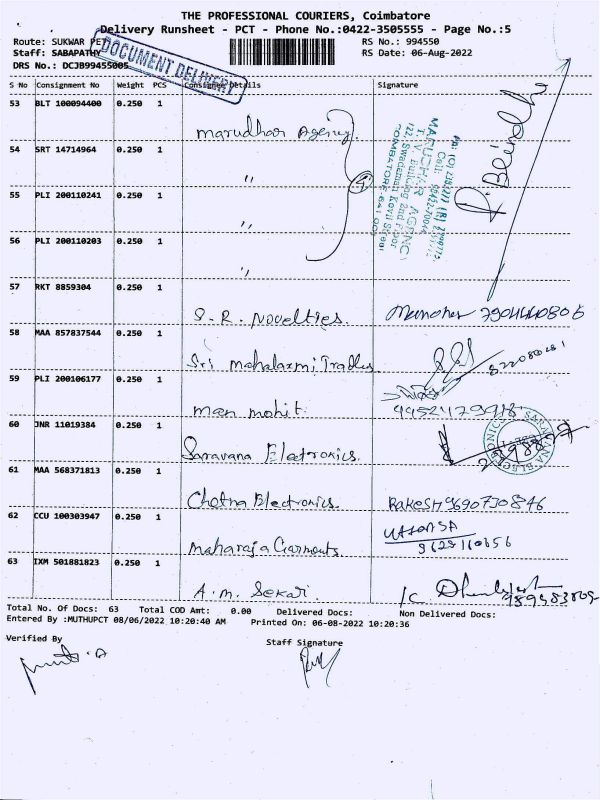 THE PROFESSIONAL COURIERS, Coimbatore
Delivery Runsheet - PCT - Phone No.:0422-3505555 - Page No.:5
Route: SUKWAR PET
RS No.: 994550
Staff: SABAPATHY
RS Date: 06-Aug-2022
DRS No.: DCJB99455005
DOCUMENT DELIVERY
S No Consignment No Weight PCS Consignee Details Signature
53 BLT 100094400 0.250 1
Marudhar Agency
54 SRT 14714964 0.250 1
"
55 PLI 200110241 0.250 1
"
56 PLI 200110203 0.250 1
"
MARUDHAR AGENCY
T.V. Building 2nd Floor
122, Swademan Kovil Street
COIMBATORE-641 001
57 RKT 8859304 0.250 1
S.R. Novelties.
Manohar
58 MAA 857837544 0.250 1
Sri mahalaxmi Trades
59 PLI 200106177 0.250 1
man mohit.
60 JNR 11019384 0.250 1
Saravana Electronics.
61 MAA 568371813 0.250 1
Chetna Electronics.
RAKESH 9690730846
62 CCU 100303947 0.250 1
maharaja Garments.
63 IXM 501881823 0.250 1
A.m. Sekar.
Total No. Of Docs: 63 Total COD Amt: 0.00 Delivered Docs: Non Delivered Docs:
Entered By :MUTHUPCT 08/06/2022 10:20:40 AM Printed On: 06-08-2022 10:20:36
Verified By
Staff Signature